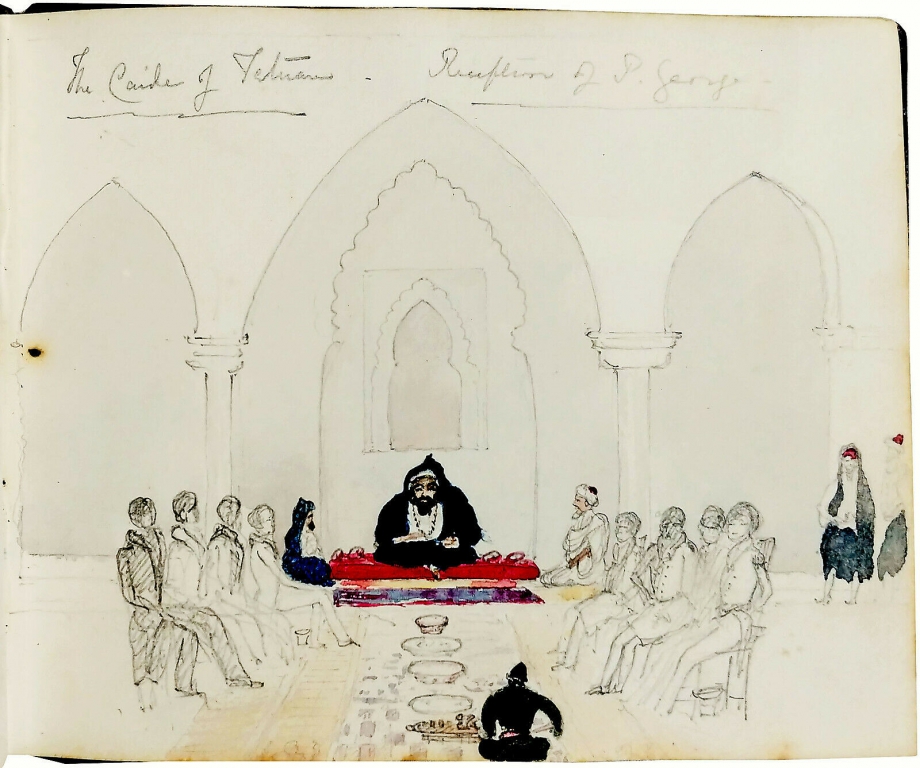 The Caide of Tetuan - Reception of P. George -